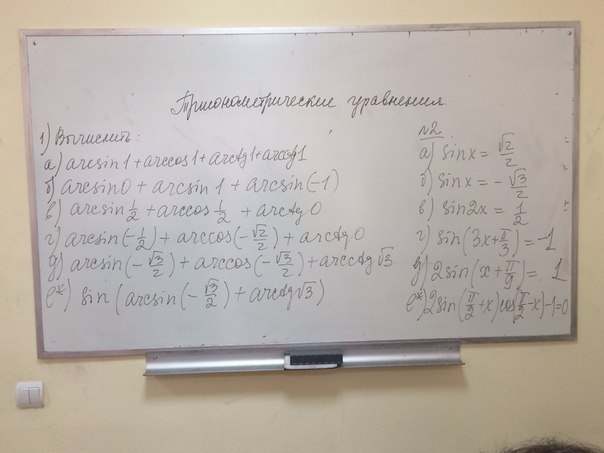 Тригонометрические уравнения.
1) Вычислить:
а) arcsin 1 + arccos 1 + arctg 1 + arcctg 1
б) arcsin 0 + arcsin 1 + arcsin(-1)
в) arcsin 1/2 + arccos 1/2 + arctg 0
г) arcsin(-1/2) + arccos(-√2/2) + arctg 0
д) arcsin(-√3/2) + arccos(-√3/2) + arcctg √3
е*) sin(arcsin(-√3/2) + arctg √3)
№2
а) sin x = √2/2
б) sin x = -√3/2
в) sin 2x = 1/2
г) sin(3x + π/3) = -1
д) 2 sin(x + π/9) = 1
е*) 2 sin(π/2 + x) cos(π/2 - x) - 1 = 0